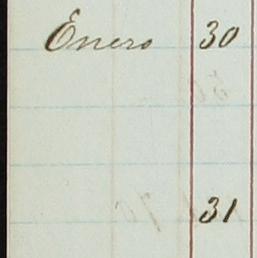 Enero 30
31